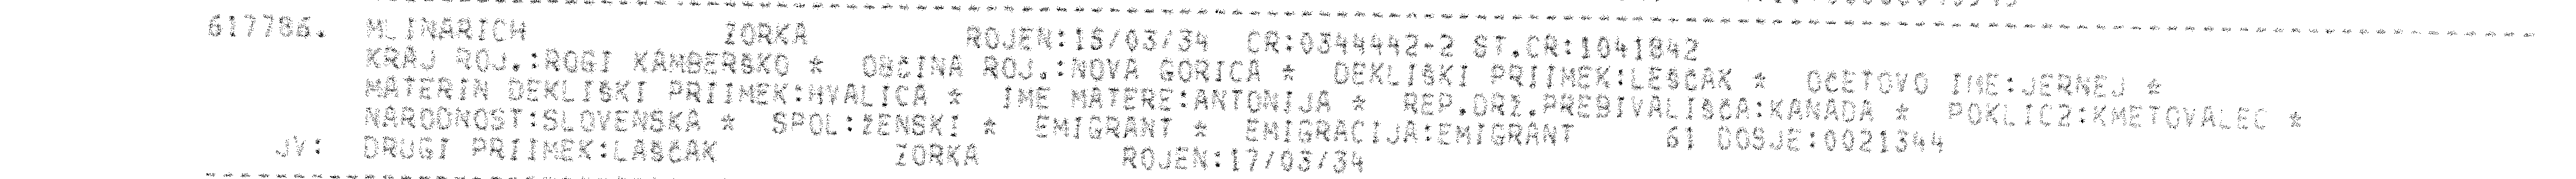 617786. MLINARICH ZORKA ROJEN:15/03/34 CR:0344442-2 ST.CR:1041842
KRAJ ROJ.:ROGI KAMBERŠKO * OBČINA ROJ.:NOVA GORICA * DEKLIŠKI PRIIMEK:LEŠČAK * OČETOVO IME:JERNEJ *
MATERIN DEKLIŠKI PRIIMEK:HVALICA * IME MATERE:ANTONIJA * REP.DRŽ.PREBIVALIŠČA:KANADA * POKLIC2:KMETOVALEC *
NARODNOST:SLOVENSKA * SPOL:ŽENSKI * EMIGRANT * EMIGRACIJA:EMIGRANT 61 DOSJE:0021344
JV: DRUGI PRIIMEK:LAŠČAK ZORKA ROJEN:17/03/34